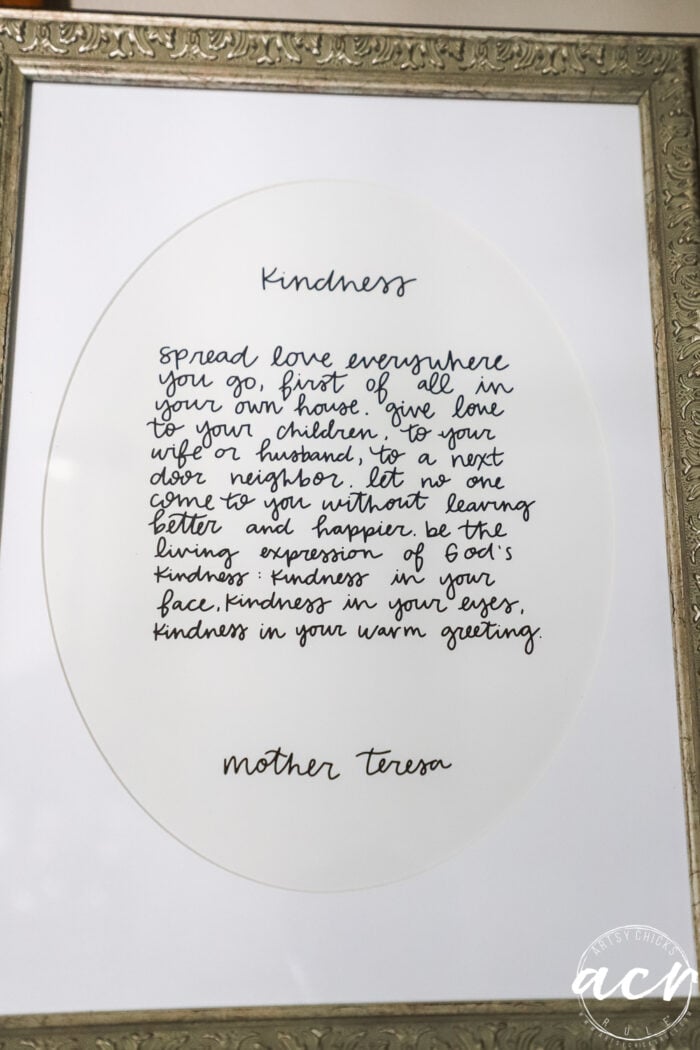 Kindness
spread love everywhere
you go, first of all in
your own house. give love
to your children, to your
wife or husband, to a next
door neighbor. let no one
come to you without leaving
better and happier. be the
living expression of God's
Kindness : Kindness in your
face, Kindness in your eyes,
Kindness in your warm greeting.
mother teresa
ARTSY CHICKS
acr
RULE